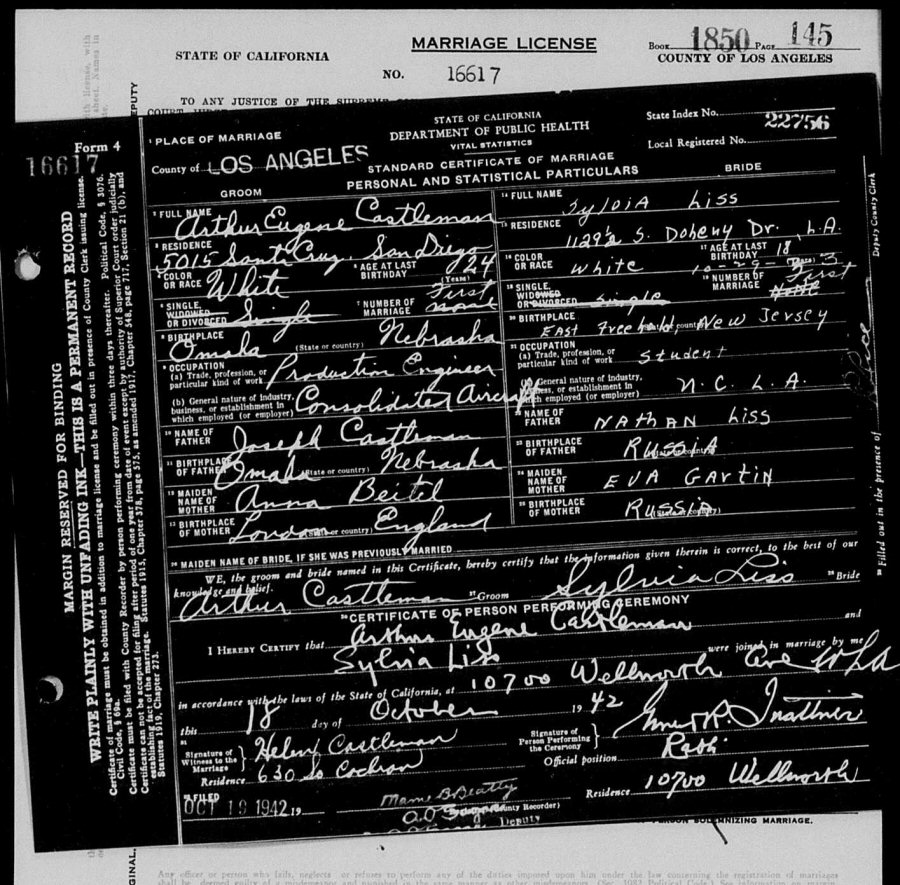 STATE OF CALIFORNIA
MARRIAGE LICENSE
BOOK 1850 PAGE 145
COUNTY OF LOS ANGELES
NO. 16617
TO ANY JUSTICE OF THE
Form 4
16617
MARGIN RESERVED FOR BINDING
WRITE PLAINLY WITH UNFADING INK—THIS IS A PERMANENT RECORD
Certificate of marriage must be obtained in addition to marriage license and be filled out in presence of County Clerk issuing license.
Civil Code, § 69a.
Certificate must be filed with County Recorder by person performing ceremony within three days thereafter. Political Code, § 3076.
Certificate can not be accepted for filing after period of one year from date of event except by authority of Superior Court order judicially
establishing fact of the marriage. Statutes 1915, Chapter 378, page 575, as amended 1917, Chapter 548, page 717, Section 21 (b), and
Statutes 1919, Chapter 273.
STATE OF CALIFORNIA
DEPARTMENT OF PUBLIC HEALTH
VITAL STATISTICS
State Index No.
22756
Local Registered No.
1 PLACE OF MARRIAGE
County of LOS ANGELES
STANDARD CERTIFICATE OF MARRIAGE
PERSONAL AND STATISTICAL PARTICULARS
GROOM
BRIDE
2 FULL NAME Arthur Eugene Castleman
14 FULL NAME Sylvia Liss
3 RESIDENCE 5015 Santa Cruz, San Diego
15 RESIDENCE 1129½ S. Doheny Dr. L.A.
4 COLOR OR RACE White
5 AGE AT LAST BIRTHDAY 24 (Years)
16 COLOR OR RACE white
17 AGE AT LAST BIRTHDAY 18
6 SINGLE, WIDOWED OR DIVORCED Single
7 NUMBER OF MARRIAGE First
18 SINGLE, WIDOWED OR DIVORCED single
19 NUMBER OF MARRIAGE First
8 BIRTHPLACE Omaha Nebraska
(State or country)
20 BIRTHPLACE East Freehold New Jersey
9 OCCUPATION
(a) Trade, profession, or particular kind of work Production Engineer
21 OCCUPATION
(a) Trade, profession, or particular kind of work Student
(b) General nature of industry, business, or establishment in which employed (or employer) Consolidated Aircraft
(b) General nature of industry, business, or establishment in which employed (or employer) U.C.L.A.
10 NAME OF FATHER Joseph Castleman
22 NAME OF FATHER Nathan Liss
11 BIRTHPLACE OF FATHER Omaha Nebraska
(State or country)
23 BIRTHPLACE OF FATHER Russia
12 MAIDEN NAME OF MOTHER Anna Beitel
24 MAIDEN NAME OF MOTHER Eva Gartin
13 BIRTHPLACE OF MOTHER London England
25 BIRTHPLACE OF MOTHER Russia
26 MAIDEN NAME OF BRIDE, IF SHE WAS PREVIOUSLY MARRIED
WE, the groom and bride named in this Certificate, hereby certify that the information given therein is correct, to the best of our
knowledge and belief.
Arthur Castleman 27 Groom Sylvia Liss 28 Bride
CERTIFICATE OF PERSON PERFORMING CEREMONY
I HEREBY CERTIFY that Arthur Eugene Castleman and
Sylvia Liss were joined in marriage by me
in accordance with the laws of the State of California, at 10700 Wellworth Ave W LA
this 18 day of October 1942
Signature of Witness to the Marriage Helen Castleman
Residence 630 So Cochran
Signature of Person Performing the Ceremony
Official position Rabbi
Residence 10700 Wellworth
FILED OCT 19 1942, 19
Mame B. Beatty
(County Recorder)
Deputy
Filled out in the presence of
Deputy County Clerk
PERSON SOLEMNIZING MARRIAGE.
Any officer or person who fails, neglects or refuses to perform any of the duties imposed upon him under the law concerning the registration of marriages